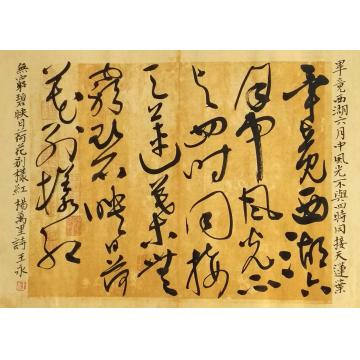 畢竟西湖六月中風光不與四時同接天蓮葉
畢竟西湖六
月中風光不
与四时同接
天蓮葉無
窮碧映日荷
花别樣紅
無窮碧映日荷花别樣紅 楊萬里詩 王永